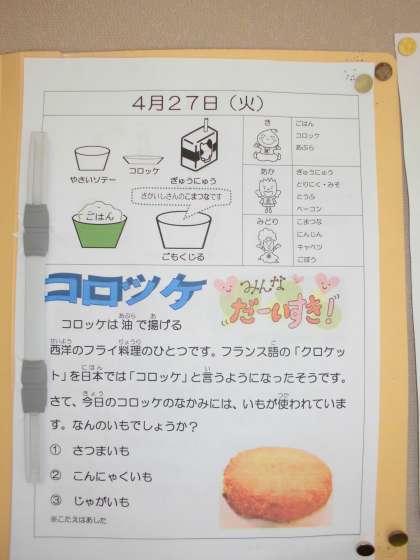 4月27日（火）
やさいソテー
コロッケ
ぎゅうにゅう
ごはん
さかいしさんのこまつなです
ごもくじる
き
ごはん
コロッケ
あぶら
あか
ぎゅうにゅう
とりにく・みそ
とうふ
ベーコン
みどり
こまつな
にんじん
キャベツ
ごぼう
コロッケ
みんな
だーいすき!
コロッケは油で揚げる
西洋のフライ料理のひとつです。フランス語の「クロケッ
ト」を日本では「コロッケ」と言うようになったそうです。
さて、今日のコロッケのなかみには、いもが使われていま
す。なんのいもでしょうか？
① さつまいも
② こんにゃくいも
③ じゃがいも
※こたえはあした